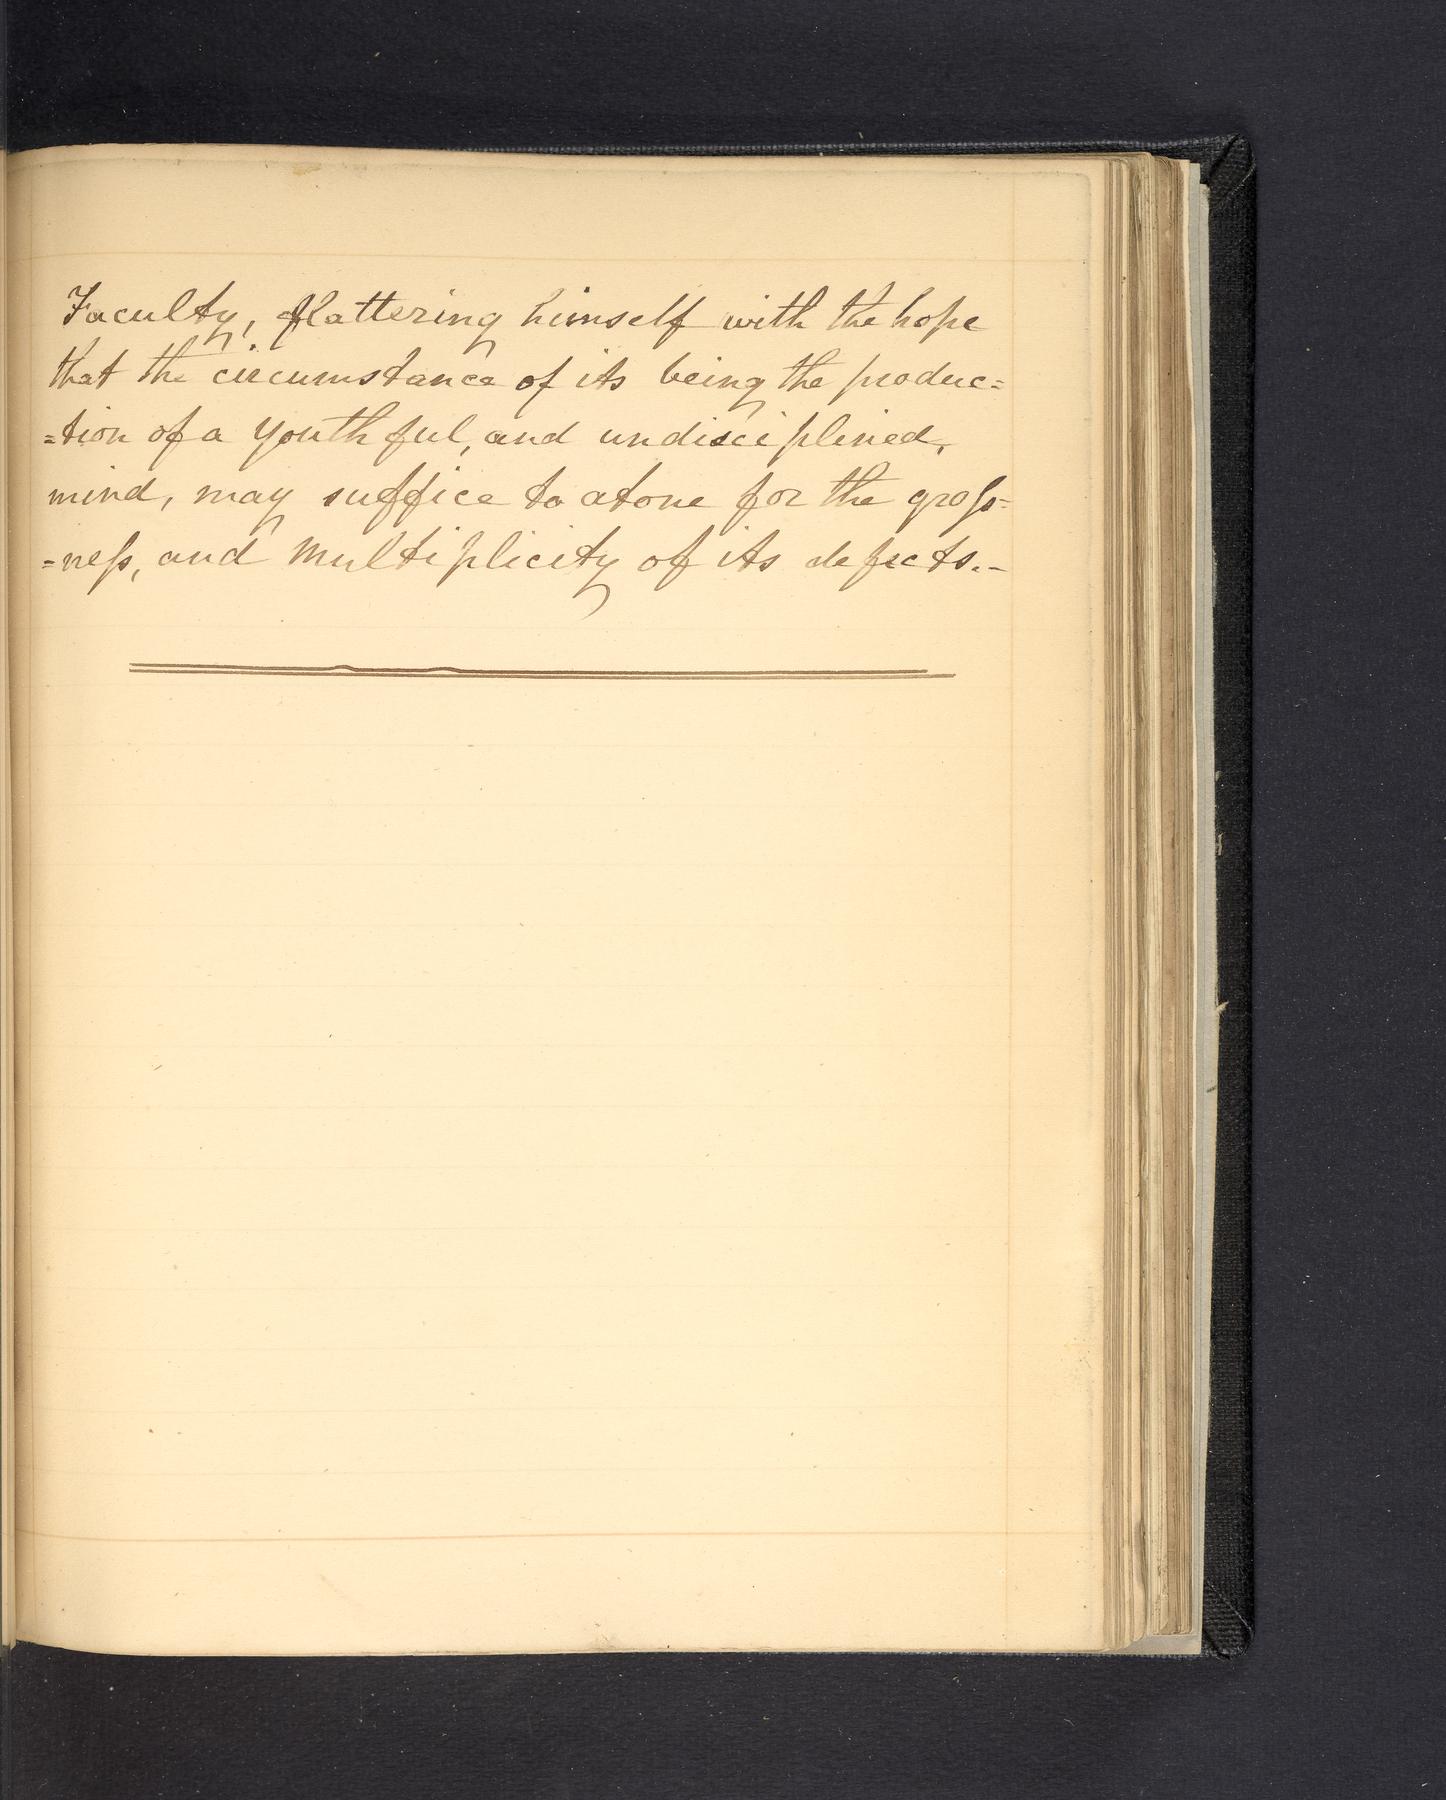 Faculty, flattering himself with the hope
that the circumstance of its being the produc=
=tion of a youthful, and undisciplined,
mind, may suffice to atone for the gross=
=ness, and multiplicity of its defects.-